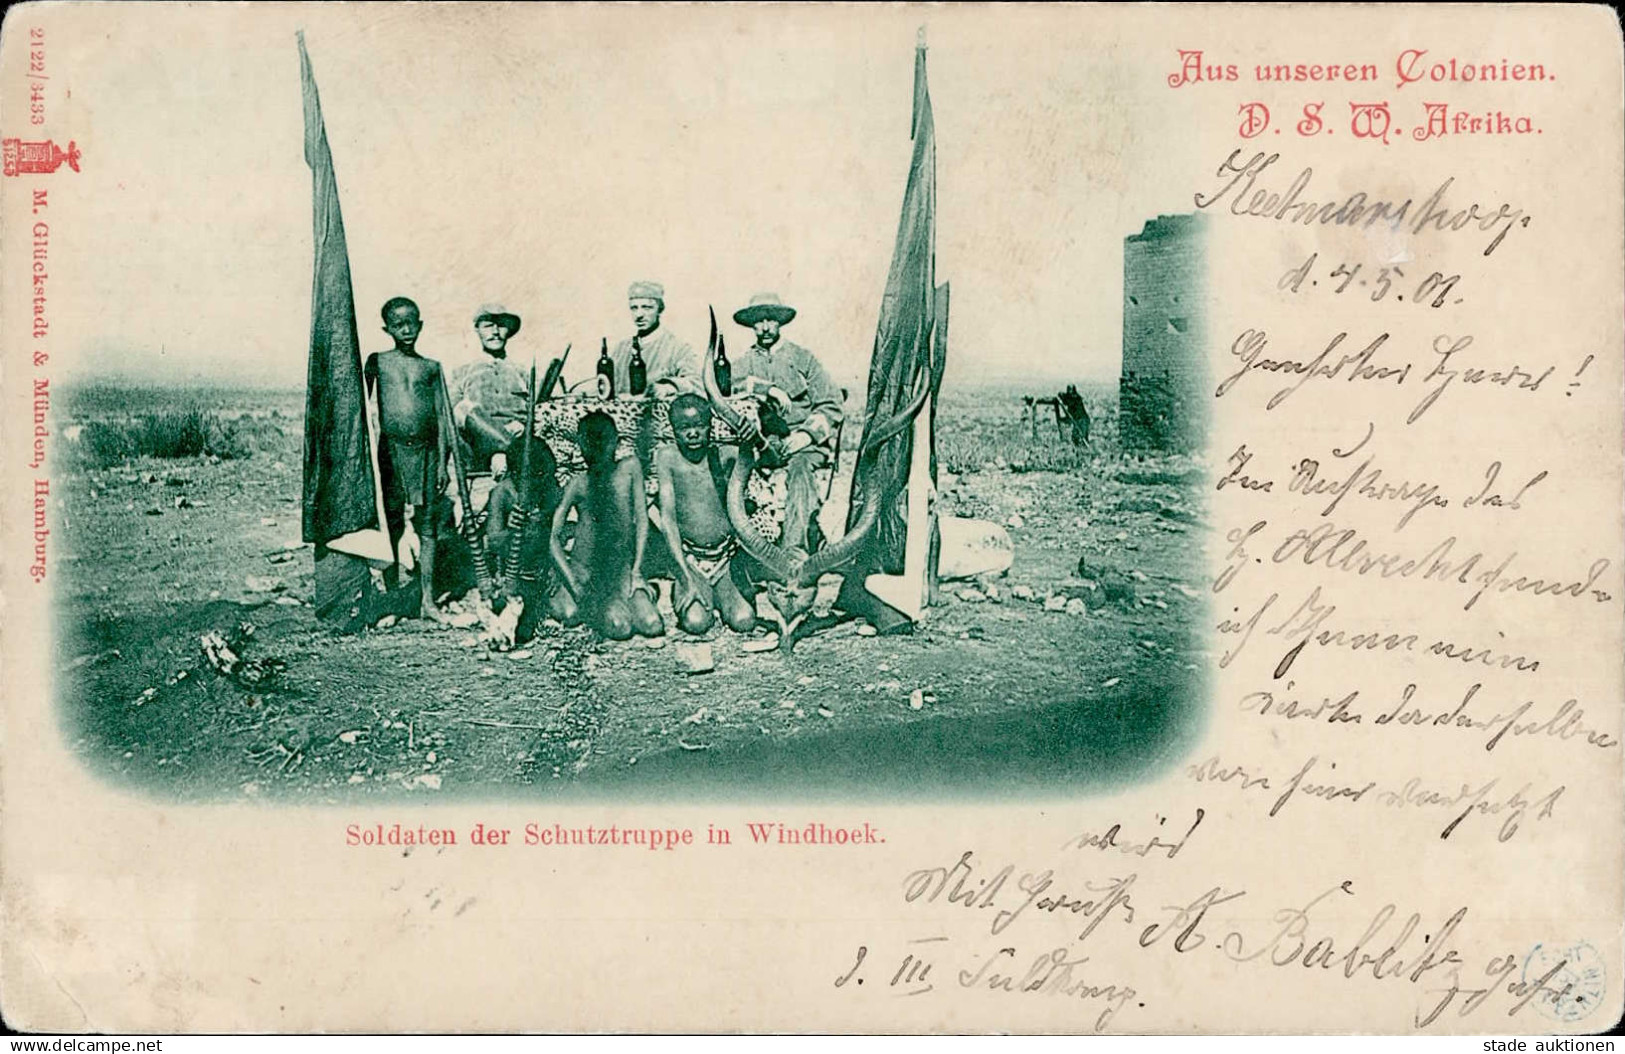 Aus unseren Colonien.
D. S. W. Afrika.
2122/3433
M. Glückstadt & Münden, Hamburg.
Keetmanshoop
d. 4.5.01.
Geehrter Herr!
Im Auftrage des
H. Albrecht sende
ich Ihnen eine
Karte da derselbe
von hier versetzt
wird
Mit Gruß A. Bablitz Gefr.
d. III Feldkomp.
Soldaten der Schutztruppe in Windhoek.
stade auktionen